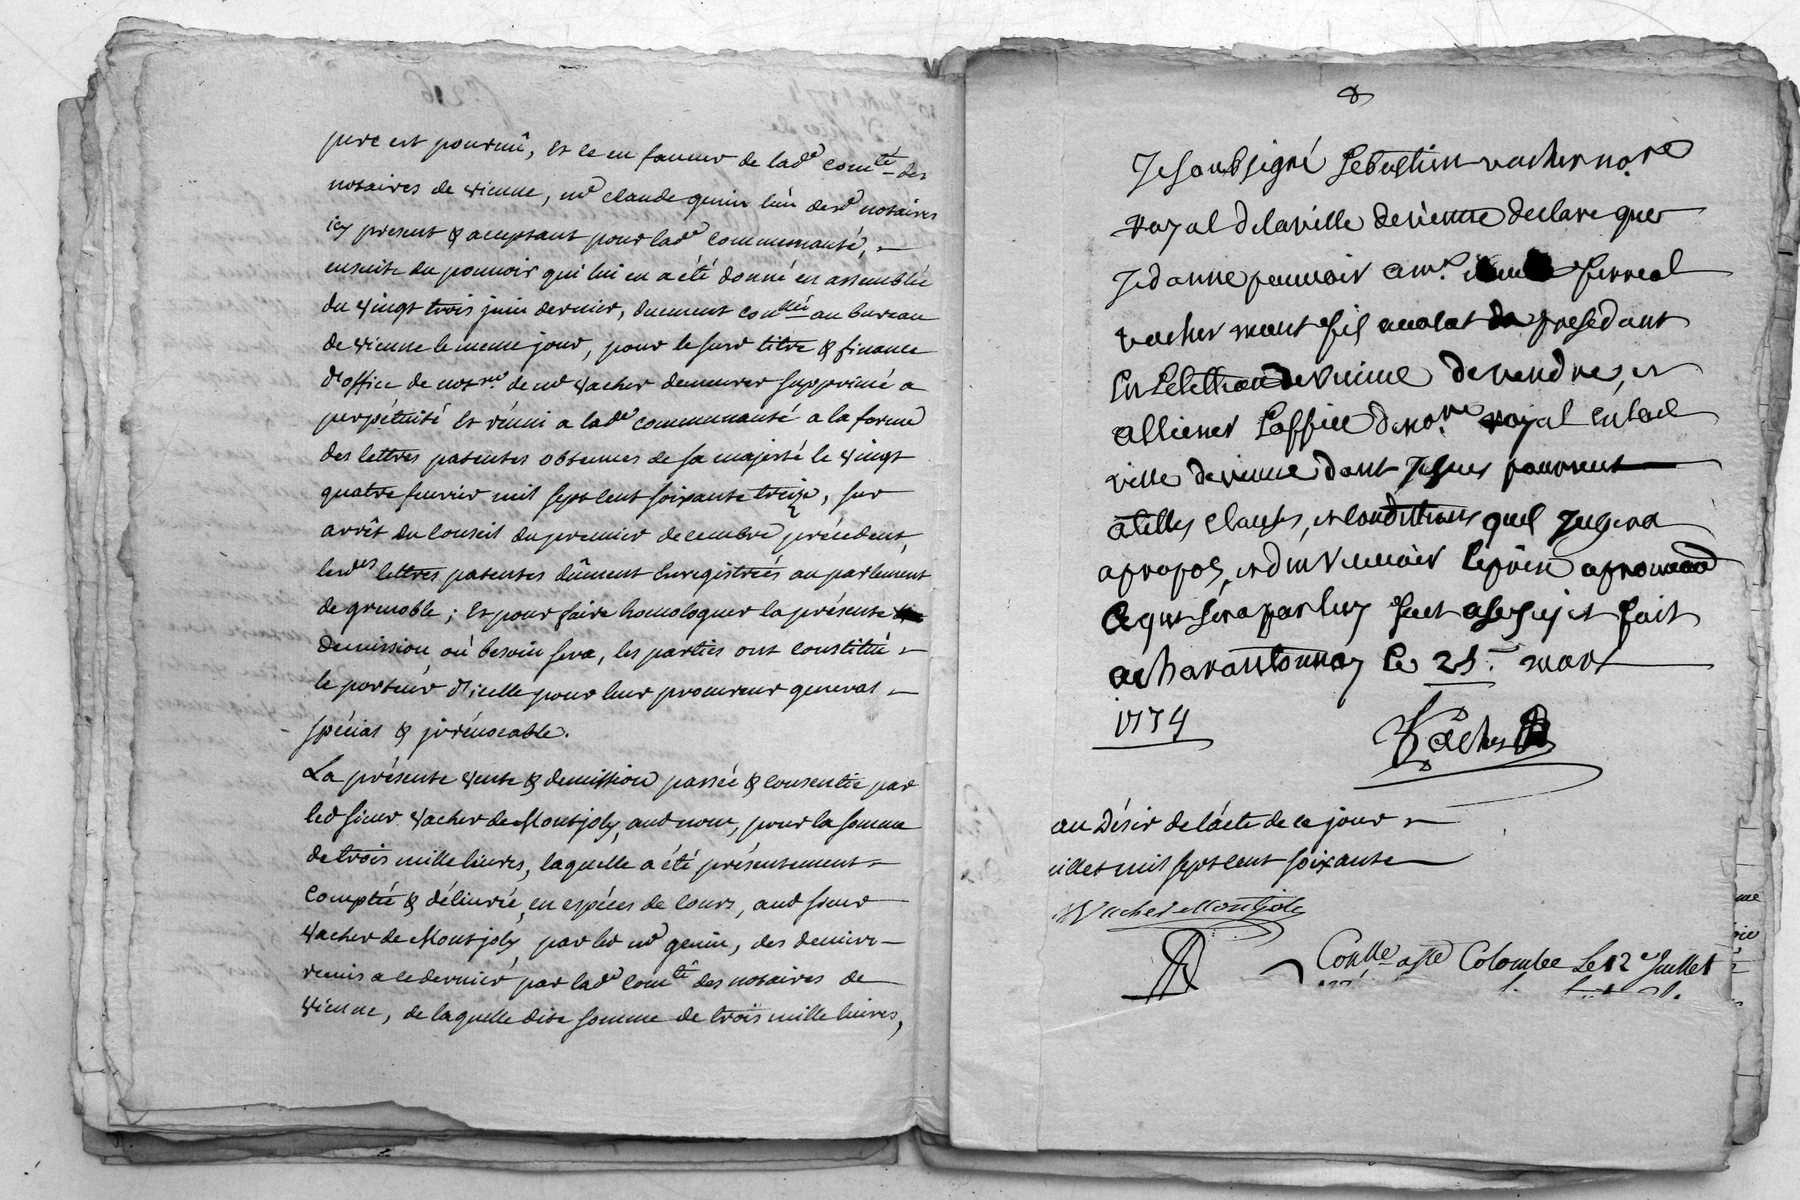 pere est pourvû, et ce en faveur de lad.e com.té des
notaires de vienne, m.e claude genin l'un desd. notaires
icy present & acceptant pour lad.e communauté,
ensuite du pouvoir qui lui en a été donné en assemblée
du vingt trois juin dernier, duement con.llé au bureau
de vienne le meme jour, pour le susd titre & finance
d'office de not.re de m.e vacher demeurer supprimé a
perpétuité et réuni a lad.e communauté a la forme
des lettres patentes obtenues de sa majesté le vingt
quatre fevrier mil sept cent soixante treize, sur
arrêt du conseil du premier decembre precedent,
lesd.es lettres patentes dûment enregistrées au parlement
de grenoble; et pour faire homologuer la présente
demission où besoin sera, les parties ont constitué
le porteur d'icelle pour leur procureur general
spécial & irrévocable.
La présente vente & demission passée & consentie par
led sieur vacher de Montjoly, aud nom, pour la somme
de trois mille livres, laquelle a été présentement
comptée & délivrée, en espéces de cours, aud sieur
vacher de Montjoly, par led m.e genin, des deniers
remis a ce dernier par lad.e com.té des notaires de
vienne, de laquelle dite somme de trois mille livres,
Je soubsigné Sebastien vacher no.re
royal de la ville de vienne declare que
Je donne pouvoir a m.r ferreol
vacher mont fils avocat presedant
en Lelection de vienne de vendre, et
alliener Loffice de no.re royal en lad
ville de vienne dont Je suis pourveut
a telles clauses, et conditions quel Jugera
apropos, et den recevoir le prix aprouvant
ce qui sera par luy fact a ce sujet fait
a charantonnay le 25 mars
1774
Vacher
au désir de l'acte de ce jour
uillet mil sept cent soixante
Vacher Montjoly
Con.lle a s.te Colombe Le 12e Juillet